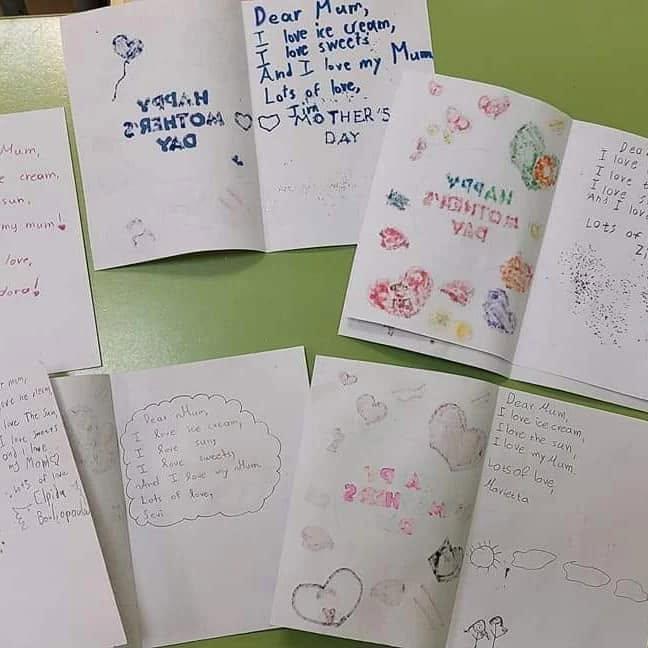 Dear Mum,
I love ice cream,
I love sweets
And I love my Mum
Lots of love,
Tim
MOTHER'S
DAY
HAPPY
MOTHER'S
DAY
Mum,
cream,
sun,
my mum!
love,
dora!
HAPPY
MOTHER'S
DAY
Dea
I love
I love
I love
And I love
Lots of
Zi
mum,
love ice cream,
love The sun,
I love sweets
and I love
my Mom
Lots of love
Elpida
Dear Mum,
I love ice cream,
I love sun,
I love sweets,
And I love my Mum
Lots of love,
Sevi
Dear Mum,
I love ice cream,
I love the sun,
I love my Mum.
Lots of love,
Marietta